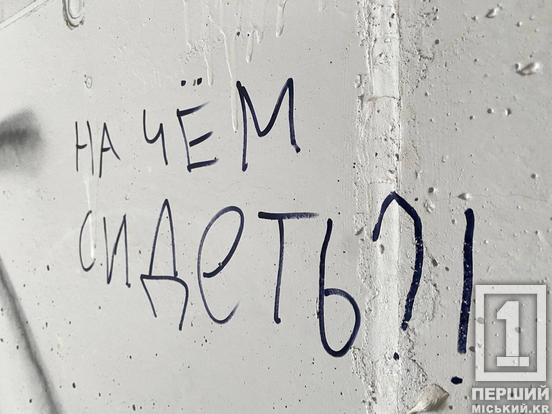 НА ЧЁМ
СИДеТЬ?!
1
ПЕРШИЙ
МІСЬКИЙ.КR